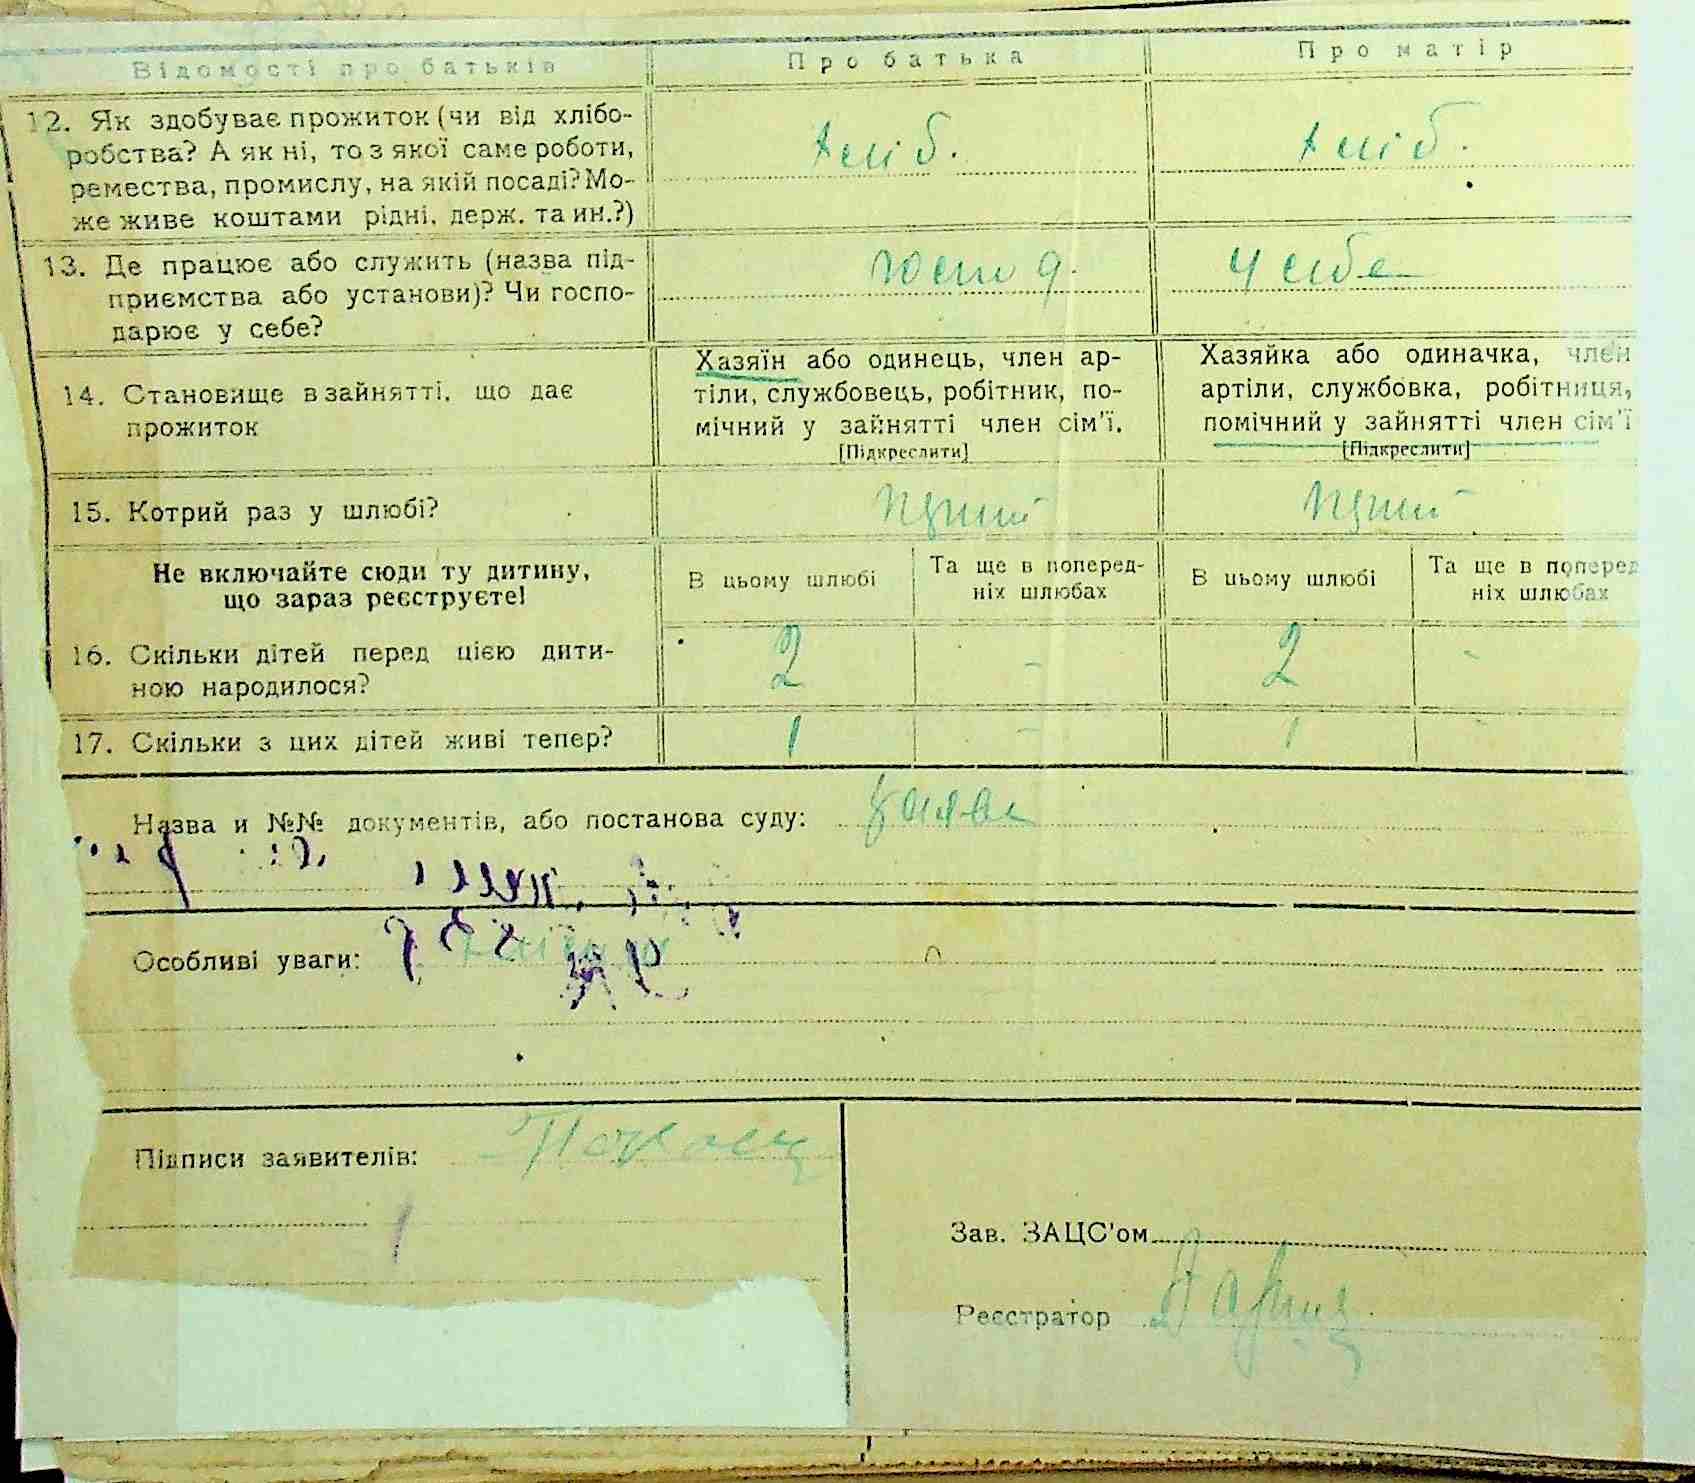 Відомості про батьків Про батька Про матір
12. Як здобуває прожиток (чи від хлібо-
робства? А як ні, то з якої саме роботи,
ремества, промислу, на якій посаді? Мо-
же живе коштами рідні, держ. та ин.?)
хліб. хліб.
13. Де працює або служить (назва під-
приємства або установи)? Чи госпо-
дарює у себе?
госп у себе
14. Становище в зайнятті, що дає
прожиток
Хазяїн або одинець, член ар-
тіли, службовець, робітник, по-
мічний у зайнятті член сім'ї.
[Підкреслити]
Хазяйка або одиначка, член
артіли, службовка, робітниця,
помічний у зайнятті член сім'ї
[Підкреслити]
15. Котрий раз у шлюбі?
Не включайте сюди ту дитину,
що зараз реєструєте!
В цьому шлюбі Та ще в поперед-
ніх шлюбах
В цьому шлюбі Та ще в поперед
ніх шлюбах
16. Скільки дітей перед цією дити-
ною народилося?
2 - 2 -
17. Скільки з цих дітей живі тепер? 1 - 1 -
Назва и №№ документів, або постанова суду: заява
Особливі уваги:
Підписи заявителів:
Зав. ЗАЦС'ом
Реєстратор